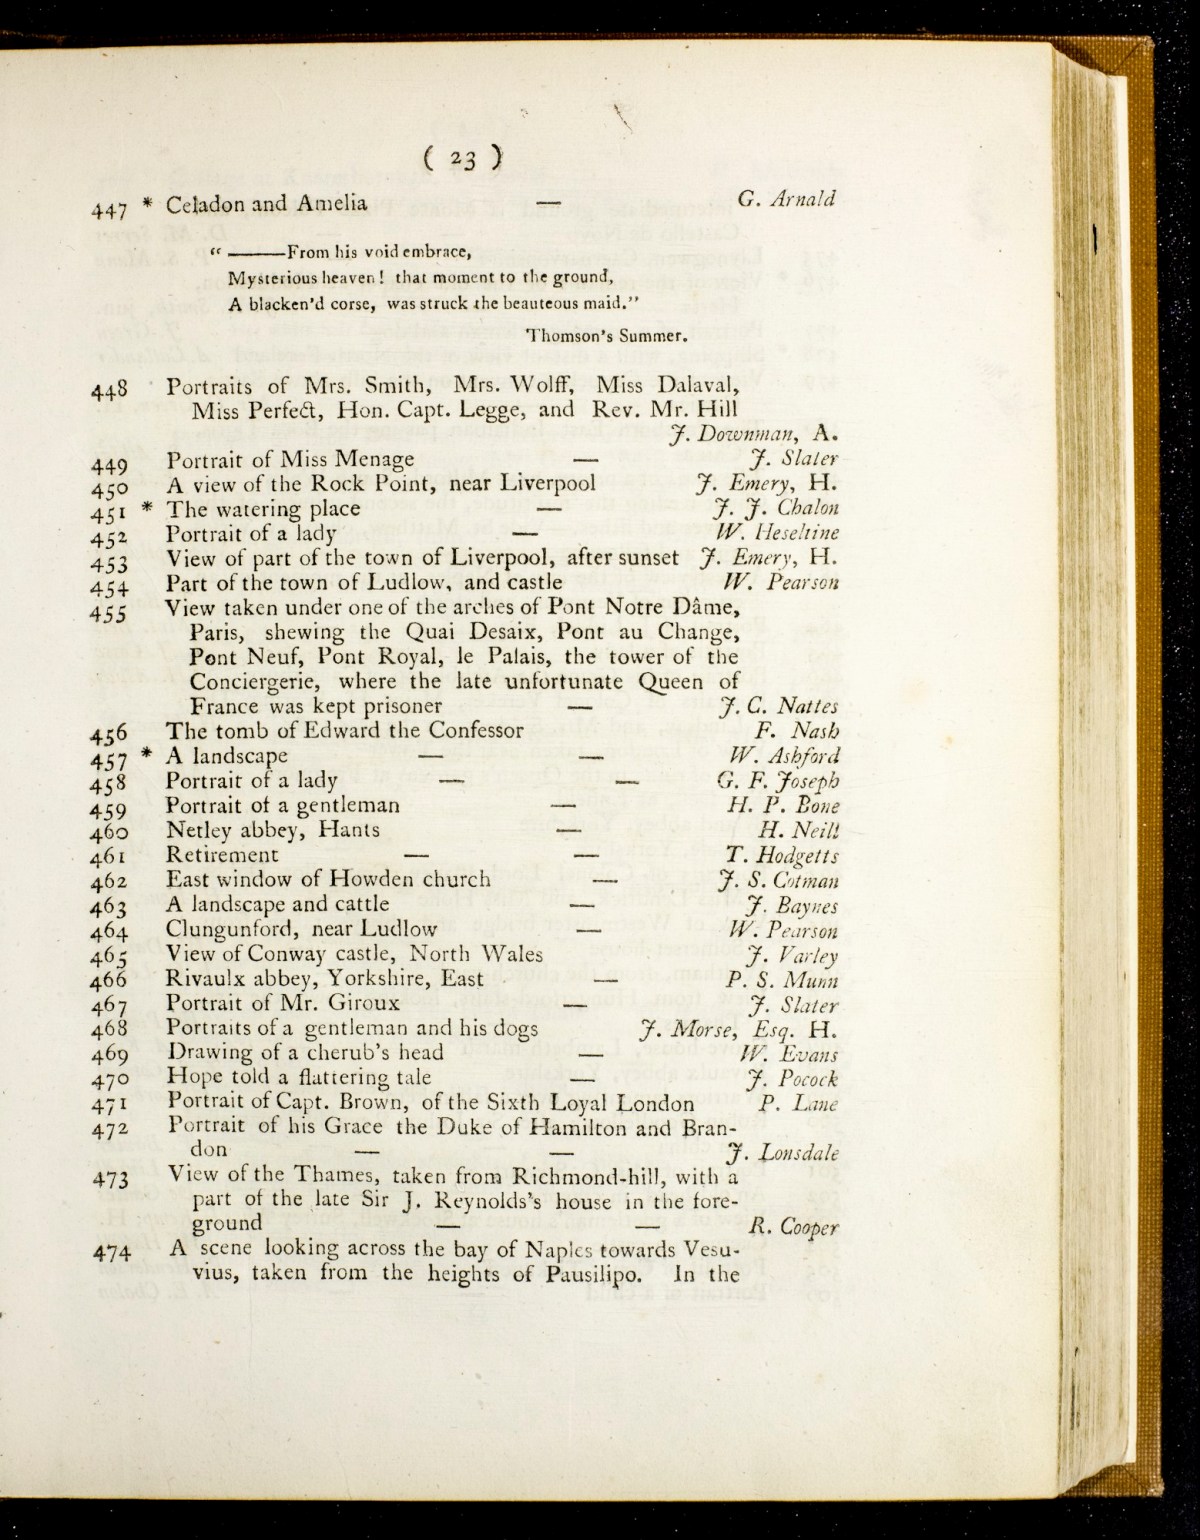 ( 23 )
447 * Celadon and Amelia — G. Arnald
“ ———From his void embrace,
Mysterious heaven! that moment to the ground,
A blacken'd corse, was struck the beauteous maid.”
Thomson's Summer.
448 Portraits of Mrs. Smith, Mrs. Wolff, Miss Dalaval,
Miss Perfect, Hon. Capt. Legge, and Rev. Mr. Hill
J. Downman, A.
449 Portrait of Miss Menage — J. Slater
450 A view of the Rock Point, near Liverpool J. Emery, H.
451 * The watering place — J. J. Chalon
452 Portrait of a lady — W. Heseltine
453 View of part of the town of Liverpool, after sunset J. Emery, H.
454 Part of the town of Ludlow, and castle W. Pearson
455 View taken under one of the arches of Pont Notre Dâme,
Paris, shewing the Quai Desaix, Pont au Change,
Pont Neuf, Pont Royal, le Palais, the tower of the
Conciergerie, where the late unfortunate Queen of
France was kept prisoner — J. C. Nattes
456 The tomb of Edward the Confessor F. Nash
457 * A landscape — — W. Ashford
458 Portrait of a lady — — G. F. Joseph
459 Portrait of a gentleman — H. P. Bone
460 Netley abbey, Hants — H. Neill
461 Retirement — — T. Hodgetts
462 East window of Howden church — J. S. Cotman
463 A landscape and cattle — J. Baynes
464 Clungunford, near Ludlow — W. Pearson
465 View of Conway castle, North Wales J. Varley
466 Rivaulx abbey, Yorkshire, East — P. S. Munn
467 Portrait of Mr. Giroux — J. Slater
468 Portraits of a gentleman and his dogs J. Morse, Esq. H.
469 Drawing of a cherub's head — W. Evans
470 Hope told a flattering tale — J. Pocock
471 Portrait of Capt. Brown, of the Sixth Loyal London P. Lane
472 Portrait of his Grace the Duke of Hamilton and Bran-
don — — J. Lonsdale
473 View of the Thames, taken from Richmond-hill, with a
part of the late Sir J. Reynolds's house in the fore-
ground — — R. Cooper
474 A scene looking across the bay of Naples towards Vesu-
vius, taken from the heights of Pausilipo. In the